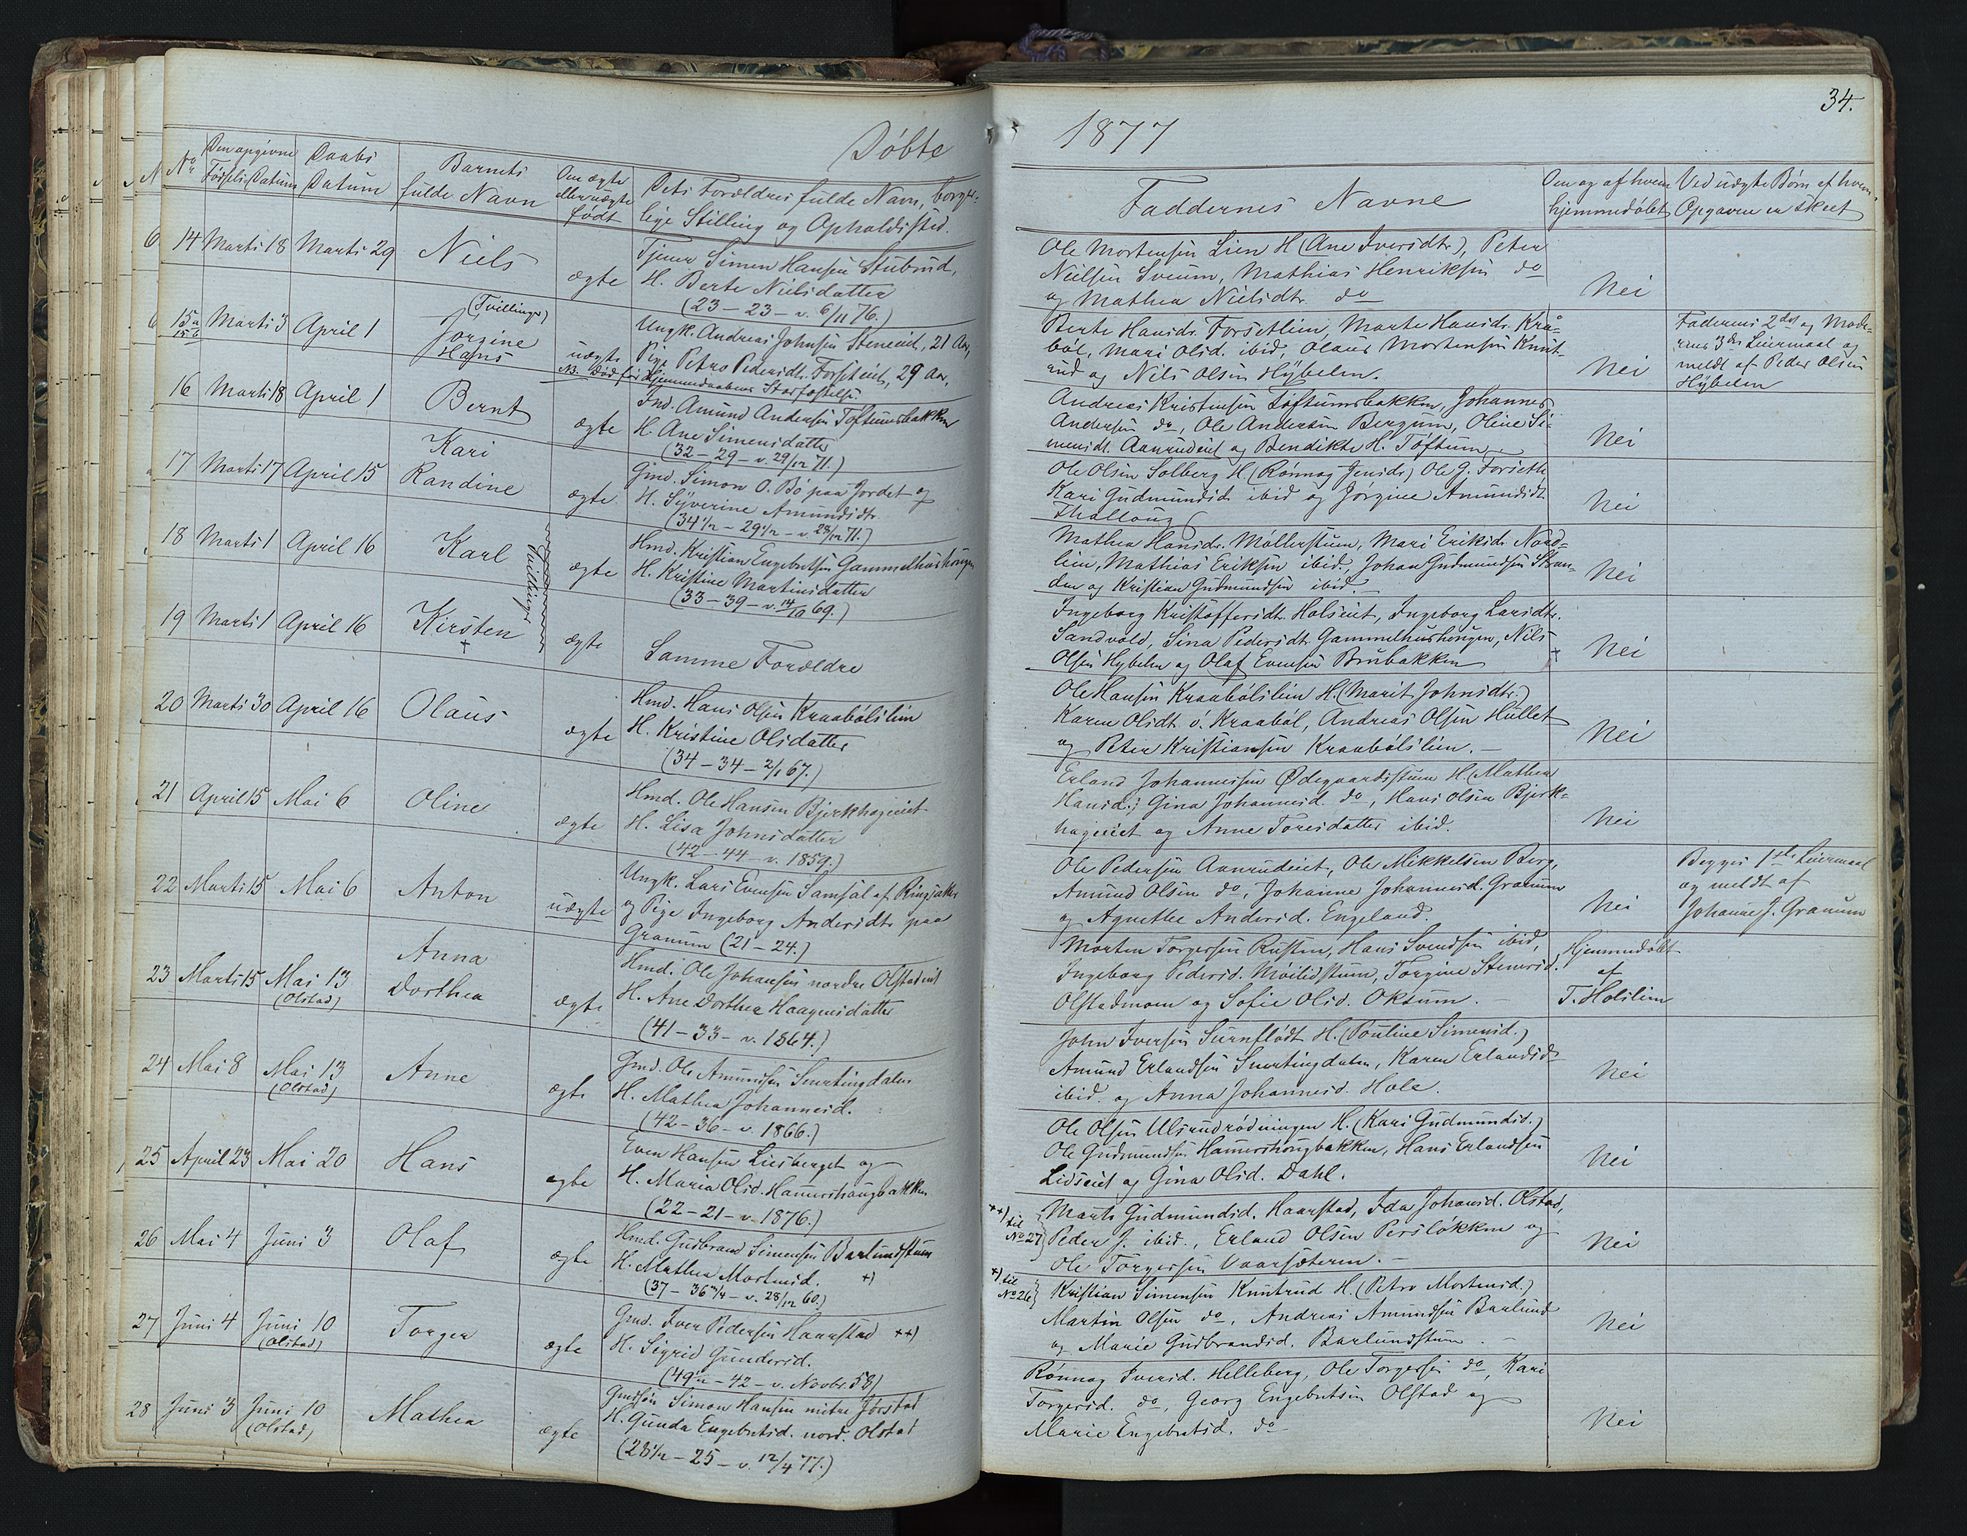 Døbte
No
Den opgivne
Fødsels-Datum
Daabs
Datum
Barnets
fulde Navn
Om ægte
eller uægte
født
Dets Forældres fulde Navn, borger-
lige Stilling og Opholdssted.
14 Marts 18 Marts 29 Niels ægte
Tjener Simen Hansen Stubrud,
H. Berte Nielsdatter
(23 - 23 - v. 6/11 76.)
15a
15b
Marts 3 April 1
(Tvillinger)
Jørgine
Hans
uægte
Ungk. Andreas Johnsen Steneiet, 21 Aar,
Pige Petra Pedersdt. Forseteiet, 29 Aar,
NB. Død før Hjemmedaabens Stadfæstelse
16 Marts 18 April 1 Bernt ægte
Ind. Amund Andersen Toftumsbakken
H. Ane Simensdatter
(32 - 29 - v. 29/12 71.)
17 Marts 17 April 15
Kari
Randine
ægte
Gmd. Simon O. Bø paa Jordet og
H. Syverine Amundsdtr.
(34 1/2 - 29 1/2 - v. 28/12 71.)
18 Marts 1 April 16 Karl ægte
Tvillinger
Hmd. Kristian Engebretsen Gammelhushougen
H. Kristine Martinsdatter
(33 - 39 - v. 14/10 69.)
19 Marts 1 April 16 Kirsten ægte
+
Samme Forældre
20 Marts 30 April 16 Olaus ægte
Hmd. Hans Olsen Kraabølslien
H. Kristine Olsdatter
(34 - 34 - 2/1 67.)
21 April 15 Mai 6 Oline ægte
Hmd. Ole Hansen Bjerkhageeiet
H. Lisa Johnsdatter
(42 - 44 - v. 1859.)
22 Marts 15 Mai 6 Anton uægte
Ungk. Lars Evensen Samsal af Ringsaker
og Pige Ingeborg Andersdtr. paa
Granum (21 - 24.)
23 Marts 15 Mai 13
(Olstad)
Anna
Dorthea
ægte
Hmd. Ole Johansen nordre Olstadeiet
H. Ane Dorthea Haagensdatter
(41 - 33 - v. 1864.)
24 Mai 8 Mai 13
(Olstad)
Anne ægte
Gmd. Ole Amundsen Snertingdalen
H. Mathea Johannesd.
(42 - 36 - v. 1866.)
25 April 23 Mai 20 Hans ægte
Even Hansen Liesberget og
H. Maria Olsd. Hamershaugbakken
(22 - 21 - v. 1876.)
26 Mai 4 Juni 3 Olaf ægte
Hmd. Gudbrand Simensen Barlundstuen
H. Mathea Mortensd. +)
(37 - 36 3/4 - v. 28/12 60.)
27 Juni 4 Juni 10
(Olstad)
Torger ægte
Gmd. Iver Pedersen Haarstad ++)
H. Sigrid Gundersd.
(49 1/2 - 42 - v. Novbr. 58)
28 Juni 3 Juni 10
(Olstad)
Mathea ægte
Gmdsøn Simon Hansen mitre Jørstad
H. Gunda Engebretsd. nord. Olstad
(28 1/2 - 25 - v. 12/4 77.)
34.
1877
Faddernes Navne
Om og af hvem
hjemmedøbt
Ved uægte Børn af hvem
Opgaven er skeet
Ole Mortensen Lien H (Ane Iversdtr.), Peter
Nielsen Sveum, Mathias Henriksen do
og Mathea Nielsdtr. do
Nei
Berte Hansdr. Forsetlien, Marte Hansdr. Kraa-
bøl, Mari Olsd. ibid, Olaus Mortensen Knut-
rud og Nils Olsen Hybelen.
Nei
Faderens 2det og Mode-
rens 3die Leiermaal og
meldt af Peder Olsen
Hybelen
Andreas Kristensen Toftumsbakken, Johannes
Andersen do, Ole Andersen Bergum, Oline Si-
mensdt. Aanrudeiet og Bendikte H. Toftum.
Nei
Ole Olsen Solberg H. (Rønnog Jensdr.) Ole J. Forsetle
Kari Gudmundsdr. ibid og Jørgine Amundsdt.
Thalloug
Nei
Mathea Hansdr. Møllerstuen, Mari Eriksdr. Nord-
lien, Mathias Eriksen ibid, Johan Gudmundsen Stran-
den og Kristian Gudmundsen ibid. -
Nei
Ingeborg Kristoffersdt. Holseiet, Ingeborg Larsdtr.
Sandvold, Sina Pedersdtr. Gammelhushougen, Nils
Olsen Hybelen og Olaf Evensen Brubakken +
Nei
Ole Hansen Kraabølslien H (Marit Johnsdtr.)
Karen Olsdt. ö. Kraabøl, Andreas Olsen Hullet
og Peter Kristiansen Kraabølslien. -
Nei
Erland Johannessen Ødegaardsstuen H (Mathea
Hansd.) Gina Johannesd. do, Hans Olsen Bjerk-
hageeiet og Anne Toresdatter ibid.
Nei
Ole Pedersen Aanrudeiet, Ole Mikkelsen Berg,
Amund Olsen do, Johanne Johannesd. Granum
og Agnethe Andersd. Engeland.
Nei
Begges 1ste Leiermaal
og meldt af
Johanne J. Granum
Morten Torgersen Rusten, Hans Svendsen ibid,
Ingeborg Pedersd. Moilidstuen, Torgine Stenersd.
Olstadmoen og Sofie Olsd. Oksum. -
Hjemmedøbt
af
T. Holslien
John Iversen Surnflødt H. (Pouline Simensd.)
Amund Erlandsen Snertingdalen, Karen Erlandsd.
ibid. og Anna Johannesd. Hole.
Nei
Ole Olsen Ulsrudrødningen H. (Kari Gudmundsd.)
Ole Gudmundsen Hamershougbakken, Hans Erlandsen
Lidseiet og Gina Olsd. Dahl.
Nei
++) til
No 27
Marts Gudmundsd. Haarstad, Ida Johansd. Olstad,
Peder J. ibid., Erland Olsen Persløkken og
Ole Torgersen Vaarsæteren. -
Nei
+) til
No 26
Kristian Simensen Knutrud H. (Petra Mortensd.)
Martin Olsen do, Andreas Amundsen Barlund
og Marie Gudbrandsd. Barlundstuen. -
Nei
Rønnog Iversd. Helleberg, Ole Torgersen do, Kari
Torgersd. do, Georg Engebretsen Olstad og
Marie Engebretsd. do
Nei